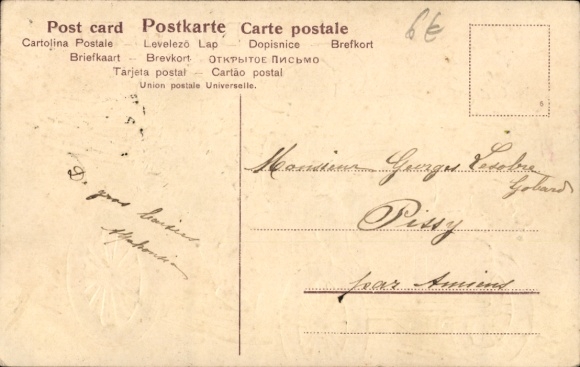 Post card Postkarte Carte postale
Cartolina Postale – Levelező Lap – Dopisnice – Brefkort
Briefkaart – Brevkort – ОТКРЫТОЕ ПИСЬМО
Tarjeta postal – Cartão postal
Union postale Universelle.
6€
Monsieur Georges Lesobre
Gobard
Pissy
par Amiens
De gros baisers